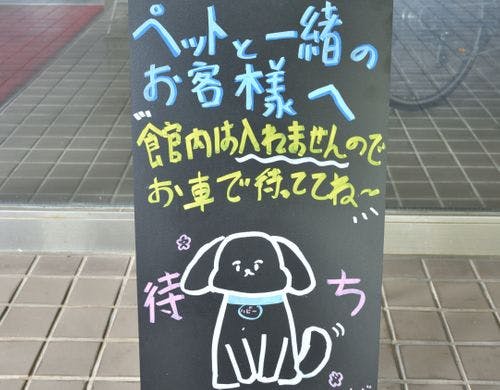 ペットと一緒の
お客様へ
館内は入れませんので
お車で待っててね～
待ち
ハッピー